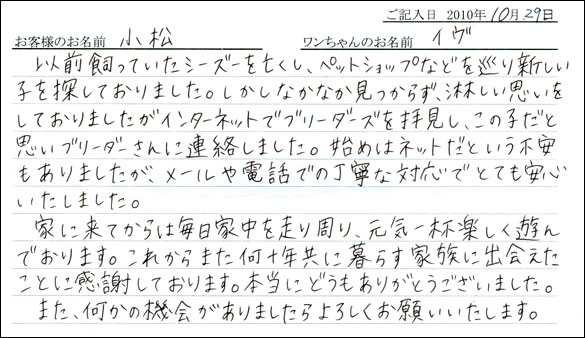 ご記入日 2010年10月29日
お客様のお名前 小松 ワンちゃんのお名前 イヴ
以前飼っていたシーズーを亡くし、ペットショップなどを巡り新しい
子を探しておりました。しかしなかなか見つからず、淋しい思いを
しておりましたがインターネットでブリーダーズを拝見し、この子だと
思いブリーダーさんに連絡しました。始めはネットだという不安
もありましたが、メールや電話での丁寧な対応でとても安心
いたしました。
家に来てからは毎日家中を走り周り、元気一杯楽しく遊ん
でおります。これからまた何十年共に暮らす家族に出会えた
ことに感謝しております。本当にどうもありがとうございました。
また、何かの機会がありましたらよろしくお願いいたします。